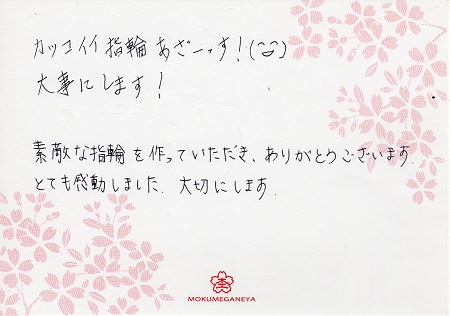 カッコイイ指輪あざーっす！(^^)
大事にします！
素敵な指輪を作っていただき、ありがとうございます.
とても感動しました. 大切にします.
MOKUMEGANEYA